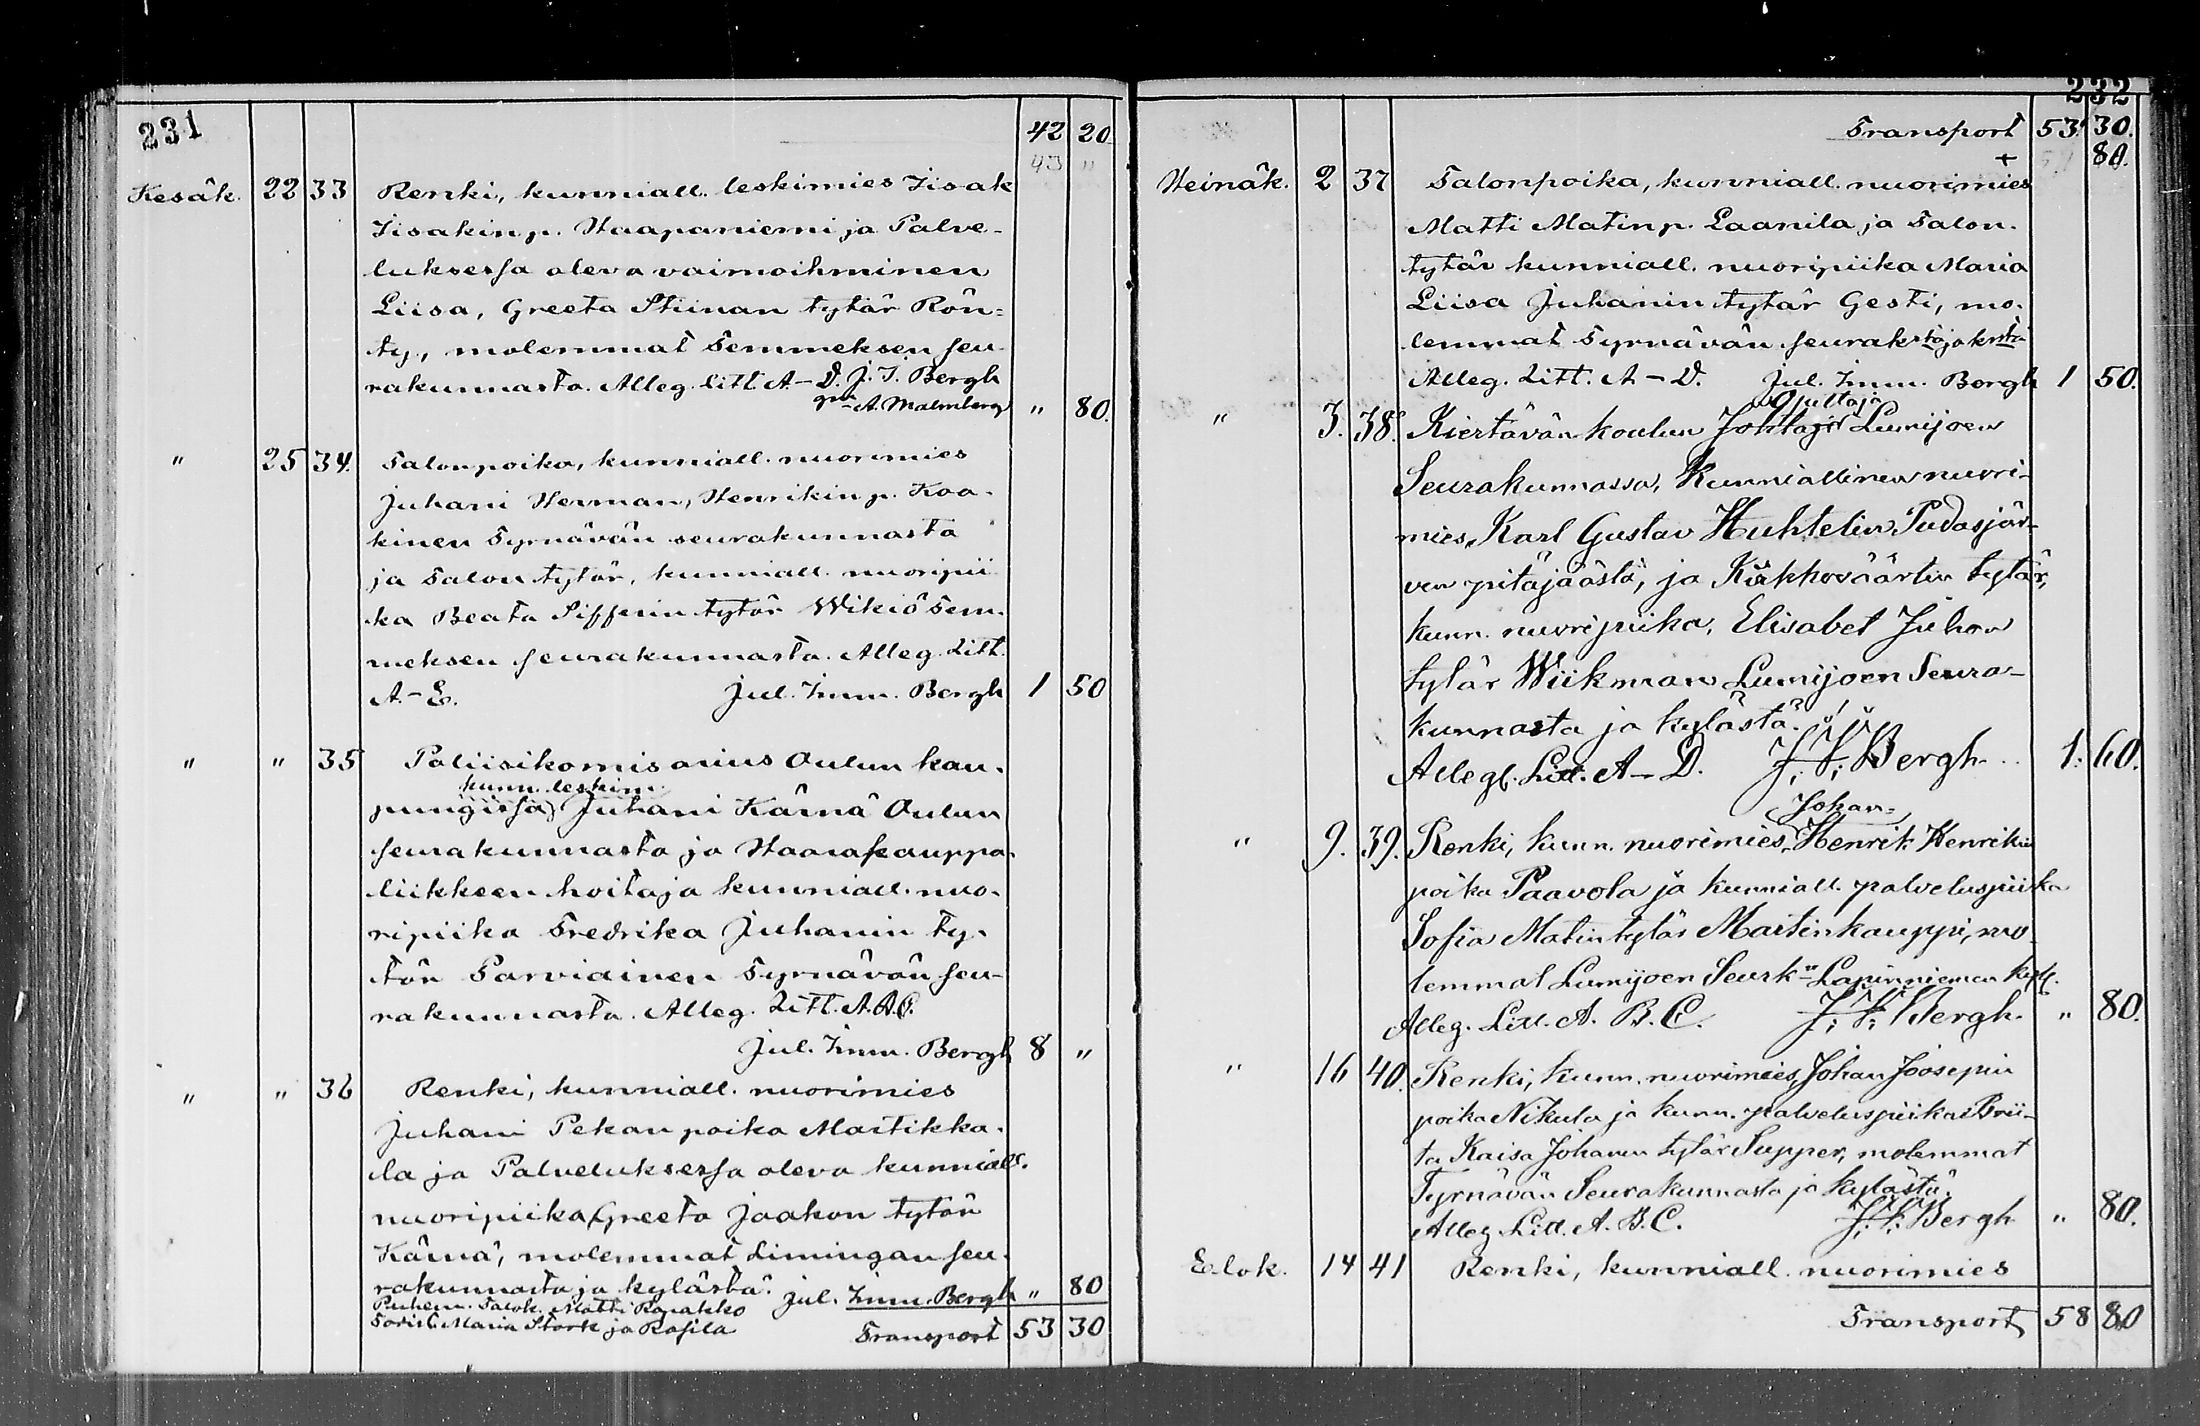 231
42 20
43 "
Kesäk. 22 33 Renki, kunniall. leskimies Iisak
Iisakin p. Haapaniemi ja Palve-
luksessa oleva vaimoihminen
Liisa, Greeta Stiinan tytär Rön-
ty, molemmat Temmeksen seu-
rakunnasta. Alleg. litt A-D. J. I. Bergh
gm A. Malmberg " 80.
" 25 34. Talonpoika, kunniall. nuorimies
Juhani Herman, Henrikin p. Kaa-
kinen Tyrnävän seurakunnasta
ja Talon tytär, kunniall. nuoripii-
ka Beata Sifferin tytär Wikiö Tem-
meksen seurakunnasta. Alleg. Litt.
A.-E. Jul. Imm. Bergh 1 50
" " 35 Poliisikomisarius Oulun kau-
kunn. leskim.
pungissa, Juhani Kärnä Oulun
seurakunnasta ja Haarakauppa-
liikkeen hoitaja kunniall. nuo-
ripiika Fredrika Juhanin ty-
tär Parviainen Tyrnävän seu-
rakunnasta. Alleg. Litt. A. B. C.
Jul. Imm. Bergh 8 "
" " 36 Renki, kunniall. nuorimies
Juhani Pekan poika Martikka-
la ja Palveluksessa oleva kunniall.
nuoripiika Greeta Jaakon tytär
Kärnä, molemmat Limingan seu-
rakunnasta ja kylästä. Jul. Imm. Bergh " 80
Puhem. Talok. Matti Rapakko
Todist. Maria Stark ja Rafila Transport 53 30
232
Transport 53. 30.
+ 80.
Heinäk. 2 37 Talonpoika, kunniall. nuorimies
Matti Matinp. Laanila ja Talon-
tytär kunniall. nuoripiika Maria
Liisa Juhanin tytär Gesti, mo-
lemmat Tyrnävän seurakstaja kstä
Alleg. Litt. A-D. Jul. Imm. Bergh 1 50.
Opettaja
" 3. 38. Kiertävän koulun Johtaja Lumijoen
Seurakunnassa, Kunniallinen nuori-
mies, Karl Gustav Huhtelin Pudasjär-
ven pitäjäästä, ja Kirkkoväärtin tytär,
kunn. nuoripiika, Elisabet Juhon
tytär Wiikman Lumijoen Seura-
kunnasta ja kylästä.
Allegl. Litt. A-D. J. I. Bergh 1. 60.
Johan
" 9. 39. Renki, kunn. nuorimies, Henrik Henrikin
poika Paavola ja kunniall. palveluspiika
Sofia Matin tytär Martinkauppi, mo-
lemmat Lumijoen Seurk:n Lapinniemen kyl.
Alleg. Litt. A. B. C. J. I. Bergh. " 80.
" 16 40. Renki, kunn. nuorimies, Johan Joosepin
poika Nikula ja kunn. palveluspiika Brii-
ta Kaisa Johanin tytär Supper, molemmat
Tyrnävän Seurakunnasta ja kylästä.
Alleg Litt. A. B. C. J. I. Bergh " 80.
Elok. 14 41 Renki, kunniall. nuorimies
Transport 58 80